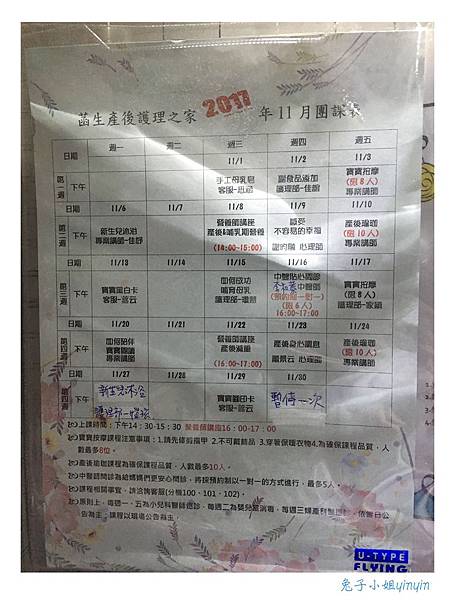 菡生產後護理之家 2017 年 11 月團課表
週一 週二 週三 週四 週五
日期 11/1 11/2 11/3
第一週 下午 手工母乳皂 副食品添加 寶寶按摩
(限 8 人)
專業講師
日期 11/6 11/7 11/8 11/9 11/10
第二週 下午 新生兒沐浴 營養師講座 產後瑜珈
專業講師-佳靜 產後&哺乳期營養 不容易的幸福 (限 10 人)
(14:00~15:00) 心理師 專業講師
日期 11/13 11/14 11/15 11/16 11/17
第三週 下午 寶寶黑白卡 如何成功 中醫貼心問診 寶寶按摩
客服- 哺育母乳 中醫師 (限 8 人)
護理部- (預約制一對一) 護理部-
(限 6 人)
16:00~17:00
日期 11/20 11/21 11/22 11/23 11/24
第四週 下午 如何陪伴 營養師講座 產後身心調適 產後瑜珈
寶寶閱讀 產後減重 心理師 (限 10 人)
專業講師 (16:00~17:00) 專業講師
日期 11/27 11/28 11/29 11/30
下午 新生兒沐浴 寶寶腳印卡 暫停一次
護理部- 客服-
上課時間：下午14：30-15：30 營養師講座16：00-17：00
寶寶按摩課程注意事項：1.請先修剪指甲 2.不可戴飾品 3.穿著保暖衣物4.為確保課程品質，人
數最多8位。
產後瑜珈課程為確保課程品質，人數最多10人。
中醫師問診為給媽媽們更安心問診，將採預約制以一對一的方式進行，最多5人。
課程相關事宜，請洽詢客服(分機100、101、102)。
原則上，每週一、五為小兒科醫師巡診，每週二為嬰兒室消毒，每週三婦產科醫師巡診，依當日公
告為主；課程以現場公告為主。
U-TYPE
FLYING
兔子小姐yinyin